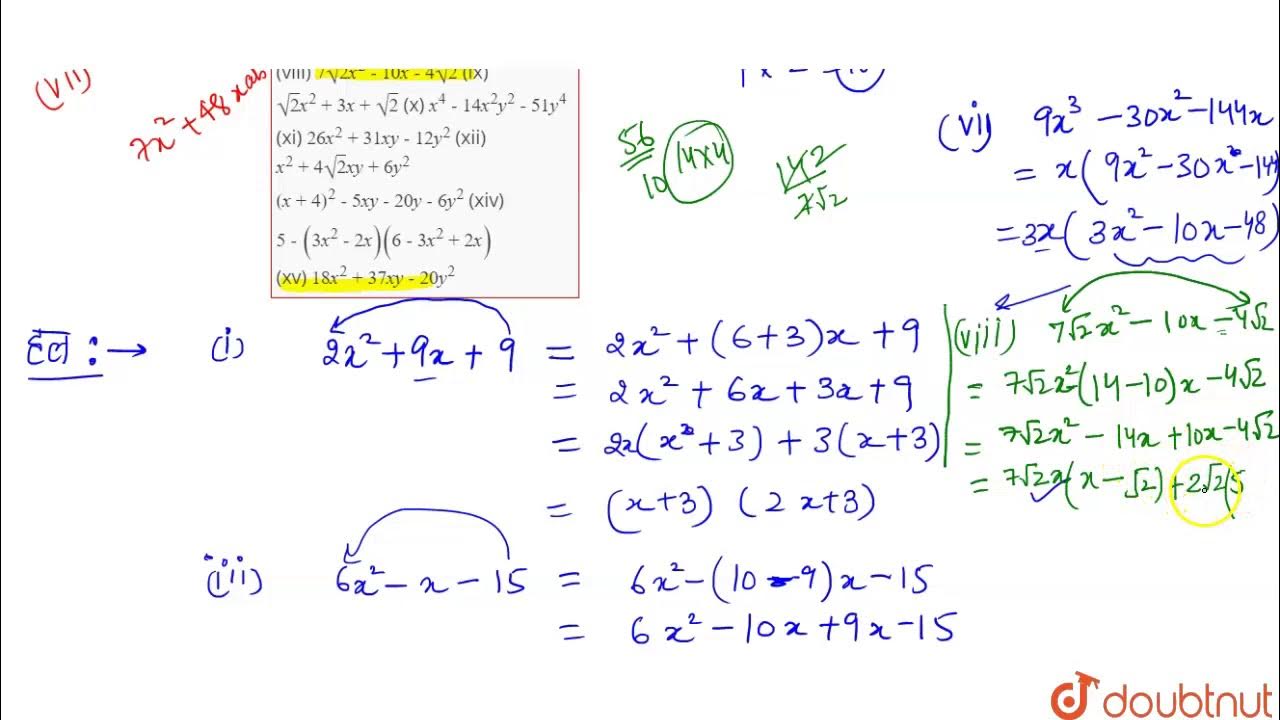 (VII)
7x² + 48xab
(viii) 7√2x² - 10x - 4√2 (ix)
√2x² + 3x + √2 (x) x⁴ - 14x²y² - 51y⁴
(xi) 26x² + 31xy - 12y² (xii)
x² + 4√2xy + 6y²
(x + 4)² - 5xy - 20y - 6y² (xiv)
5 - (3x² - 2x)(6 - 3x² + 2x)
(xv) 18x² + 37xy - 20y²
56
10
14×4
14 2
7√2
(vi) 9x³ - 30x² - 144x
= x(9x² - 30x - 14
= 3x(3x² - 10x - 48)
हल : → (i) 2x² + 9x + 9 = 2x² + (6+3)x + 9
= 2x² + 6x + 3x + 9
= 2x(x + 3) + 3(x+3)
= (x+3) (2x+3)
(viii) 7√2x² - 10x - 4√2
= 7√2x² - (14-10)x - 4√2
= 7√2x² - 14x + 10x - 4√2
= 7√2x(x - √2) + 2√2(5
(iii) 6x² - x - 15 = 6x² - (10 - 9)x - 15
= 6x² - 10x + 9x - 15
doubtnut